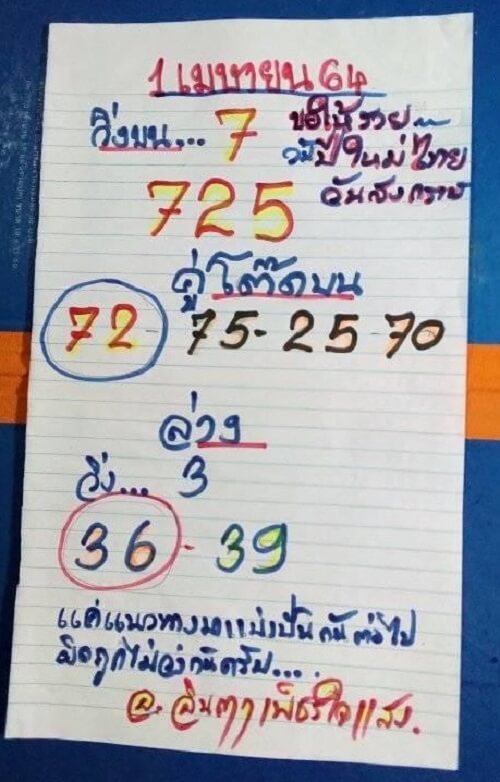 1 เมษายน 64
วิ่งบน... 7
ขอให้รวย
วันปีใหม่ไทย
วันสงกรานต์
725
คู่โต๊ดบน
72 - 75 - 25 - 70
ล่าง
วิ่ง... 3
36 - 39
แค่แนวทางมาแบ่งปันกันต่อไป
ผิดถูกไม่ว่ากันครับ....
อ. จินตา เพ็ชรใจแสง.